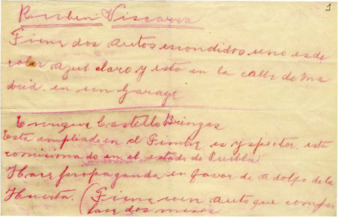 1
Ruben Viscarra
Tiene dos autos escondidos uno es de
color azul claro y esta en la calle de Ma
drid, en un Garage
Enrique Castello Bringas
Este empleado en el Timbre es y spector esta
comicionado en el estado de Puebla
Ibarr propaganda en favor de Adolfo de la
Huerta. (Tiene un auto que compro
hace dos meses